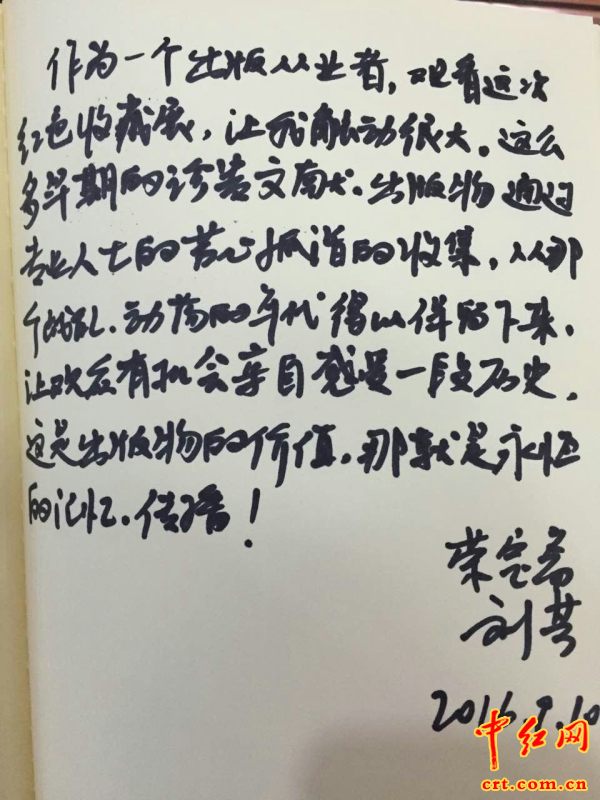 作为一个出版从业者，观看这次
红色收藏展，让我触动很大。这么
多早期的珍贵文献、出版物通过
专业人士的苦心孤诣的收集，从那
个战乱、动荡的年代得以保留下来，
让观众有机会亲自感受一段历史，
这是出版物的价值，那就是永恒
的记忆、传播！
荣宝斋
刘芳
2016.9.10
中红网
crt.com.cn